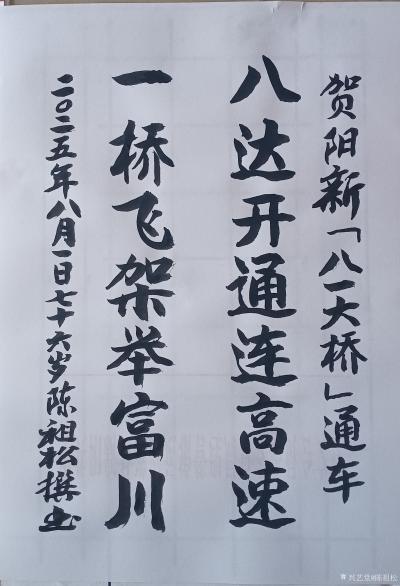 贺阳新「八一大桥」通车
八达开通连高速
一桥飞架举富川
二〇二五年八月一日七十六岁陈祖松撰书
兴艺堂@陈祖松